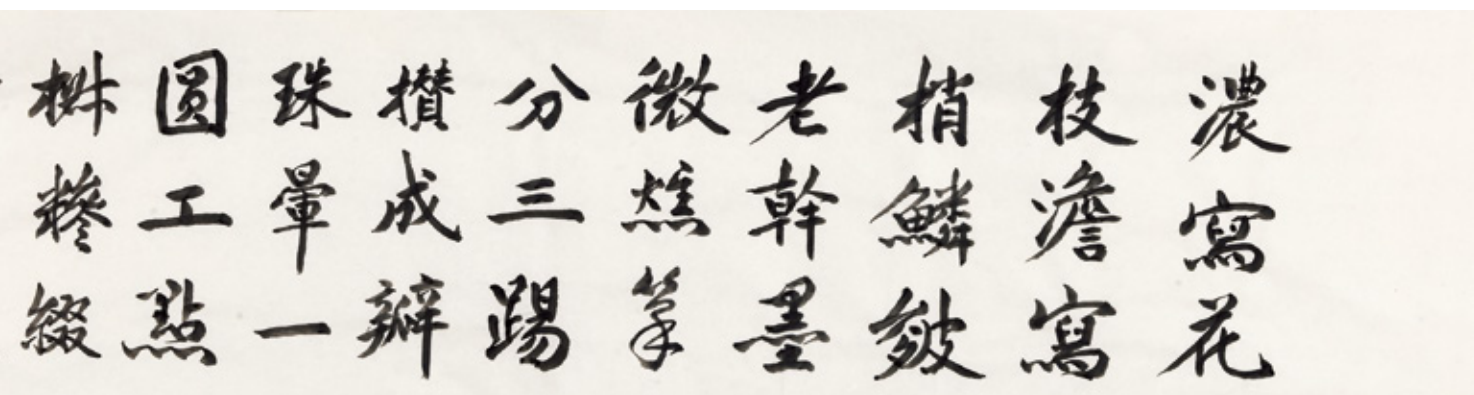 濃寫花
枝澹寫
梢鱗皴
老幹墨
微燋筆
分三踢
攢成瓣
珠暈一
圓工點
椒糝綴